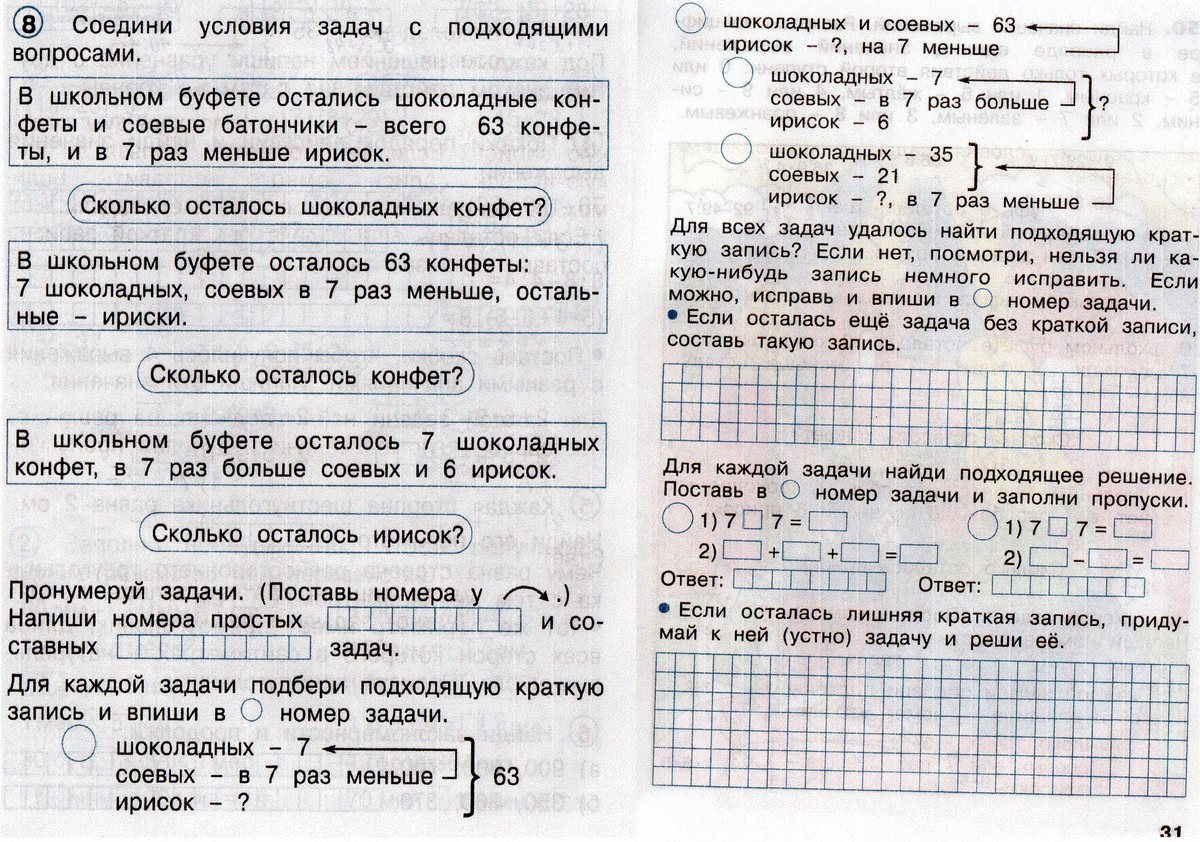 8 Соедини условия задач с подходящими
вопросами.
В школьном буфете остались шоколадные кон-
феты и соевые батончики – всего 63 конфе-
ты, и в 7 раз меньше ирисок.
Сколько осталось шоколадных конфет?
В школьном буфете осталось 63 конфеты:
7 шоколадных, соевых в 7 раз меньше, осталь-
ные – ириски.
Сколько осталось конфет?
В школьном буфете осталось 7 шоколадных
конфет, в 7 раз больше соевых и 6 ирисок.
Сколько осталось ирисок?
Пронумеруй задачи. (Поставь номера у .)
Напиши номера простых и со-
ставных задач.
Для каждой задачи подбери подходящую краткую
запись и впиши в номер задачи.
шоколадных – 7
соевых – в 7 раз меньше 63
ирисок – ?
шоколадных и соевых – 63
ирисок – ?, на 7 меньше
шоколадных – 7
соевых – в 7 раз больше ?
ирисок – 6
шоколадных – 35
соевых – 21
ирисок – ?, в 7 раз меньше
Для всех задач удалось найти подходящую крат-
кую запись? Если нет, посмотри, нельзя ли ка-
кую-нибудь запись немного исправить. Если
можно, исправь и впиши в номер задачи.
• Если осталась ещё задача без краткой записи,
составь такую запись.
Для каждой задачи найди подходящее решение.
Поставь в номер задачи и заполни пропуски.
1) 7 7 = 1) 7 7 =
2) + + = 2) – =
Ответ: Ответ:
• Если осталась лишняя краткая запись, приду-
май к ней (устно) задачу и реши её.
31